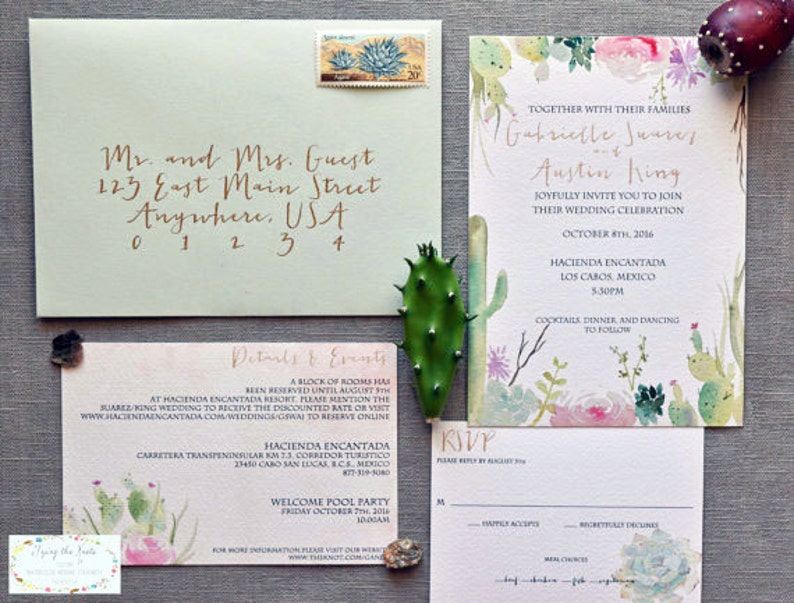 Agave deserti
Agave
USA
20c
Mr. and Mrs. Guest
123 East Main Street
Anywhere, USA
0 1 2 3 4
TOGETHER WITH THEIR FAMILIES
Gabrielle Suarez
and
Austin King
JOYFULLY INVITE YOU TO JOIN
THEIR WEDDING CELEBRATION
OCTOBER 8TH, 2016
HACIENDA ENCANTADA
LOS CABOS, MEXICO
5:30PM
COCKTAILS, DINNER, AND DANCING
TO FOLLOW
Details & Events
A BLOCK OF ROOMS HAS
BEEN RESERVED UNTIL AUGUST 5TH
AT HACIENDA ENCANTADA RESORT. PLEASE MENTION THE
SUAREZ/KING WEDDING TO RECEIVE THE DISCOUNTED RATE OR VISIT
WWW.HACIENDAENCANTADA.COM/WEDDINGS/GSWA1 TO RESERVE ONLINE
HACIENDA ENCANTADA
CARRETERA TRANSPENINSULAR KM 7.3, CORREDOR TURISTICO
23450 CABO SAN LUCAS, B.C.S., MEXICO
877-319-5080
WELCOME POOL PARTY
FRIDAY OCTOBER 7TH, 2016
10:00AM
FOR MORE INFORMATION PLEASE VISIT OUR WEBSITE
WWW.THEKNOT.COM/GAN
RSVP
PLEASE REPLY BY AUGUST 5TH
M
HAPPILY ACCEPTS REGRETFULLY DECLINES
MEAL CHOICES
beef chicken fish vegetarian
Tying the Knots